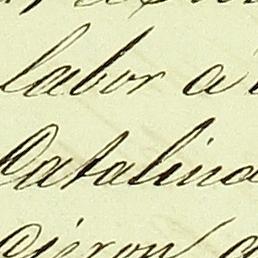 labor a
Catalina
dieron a